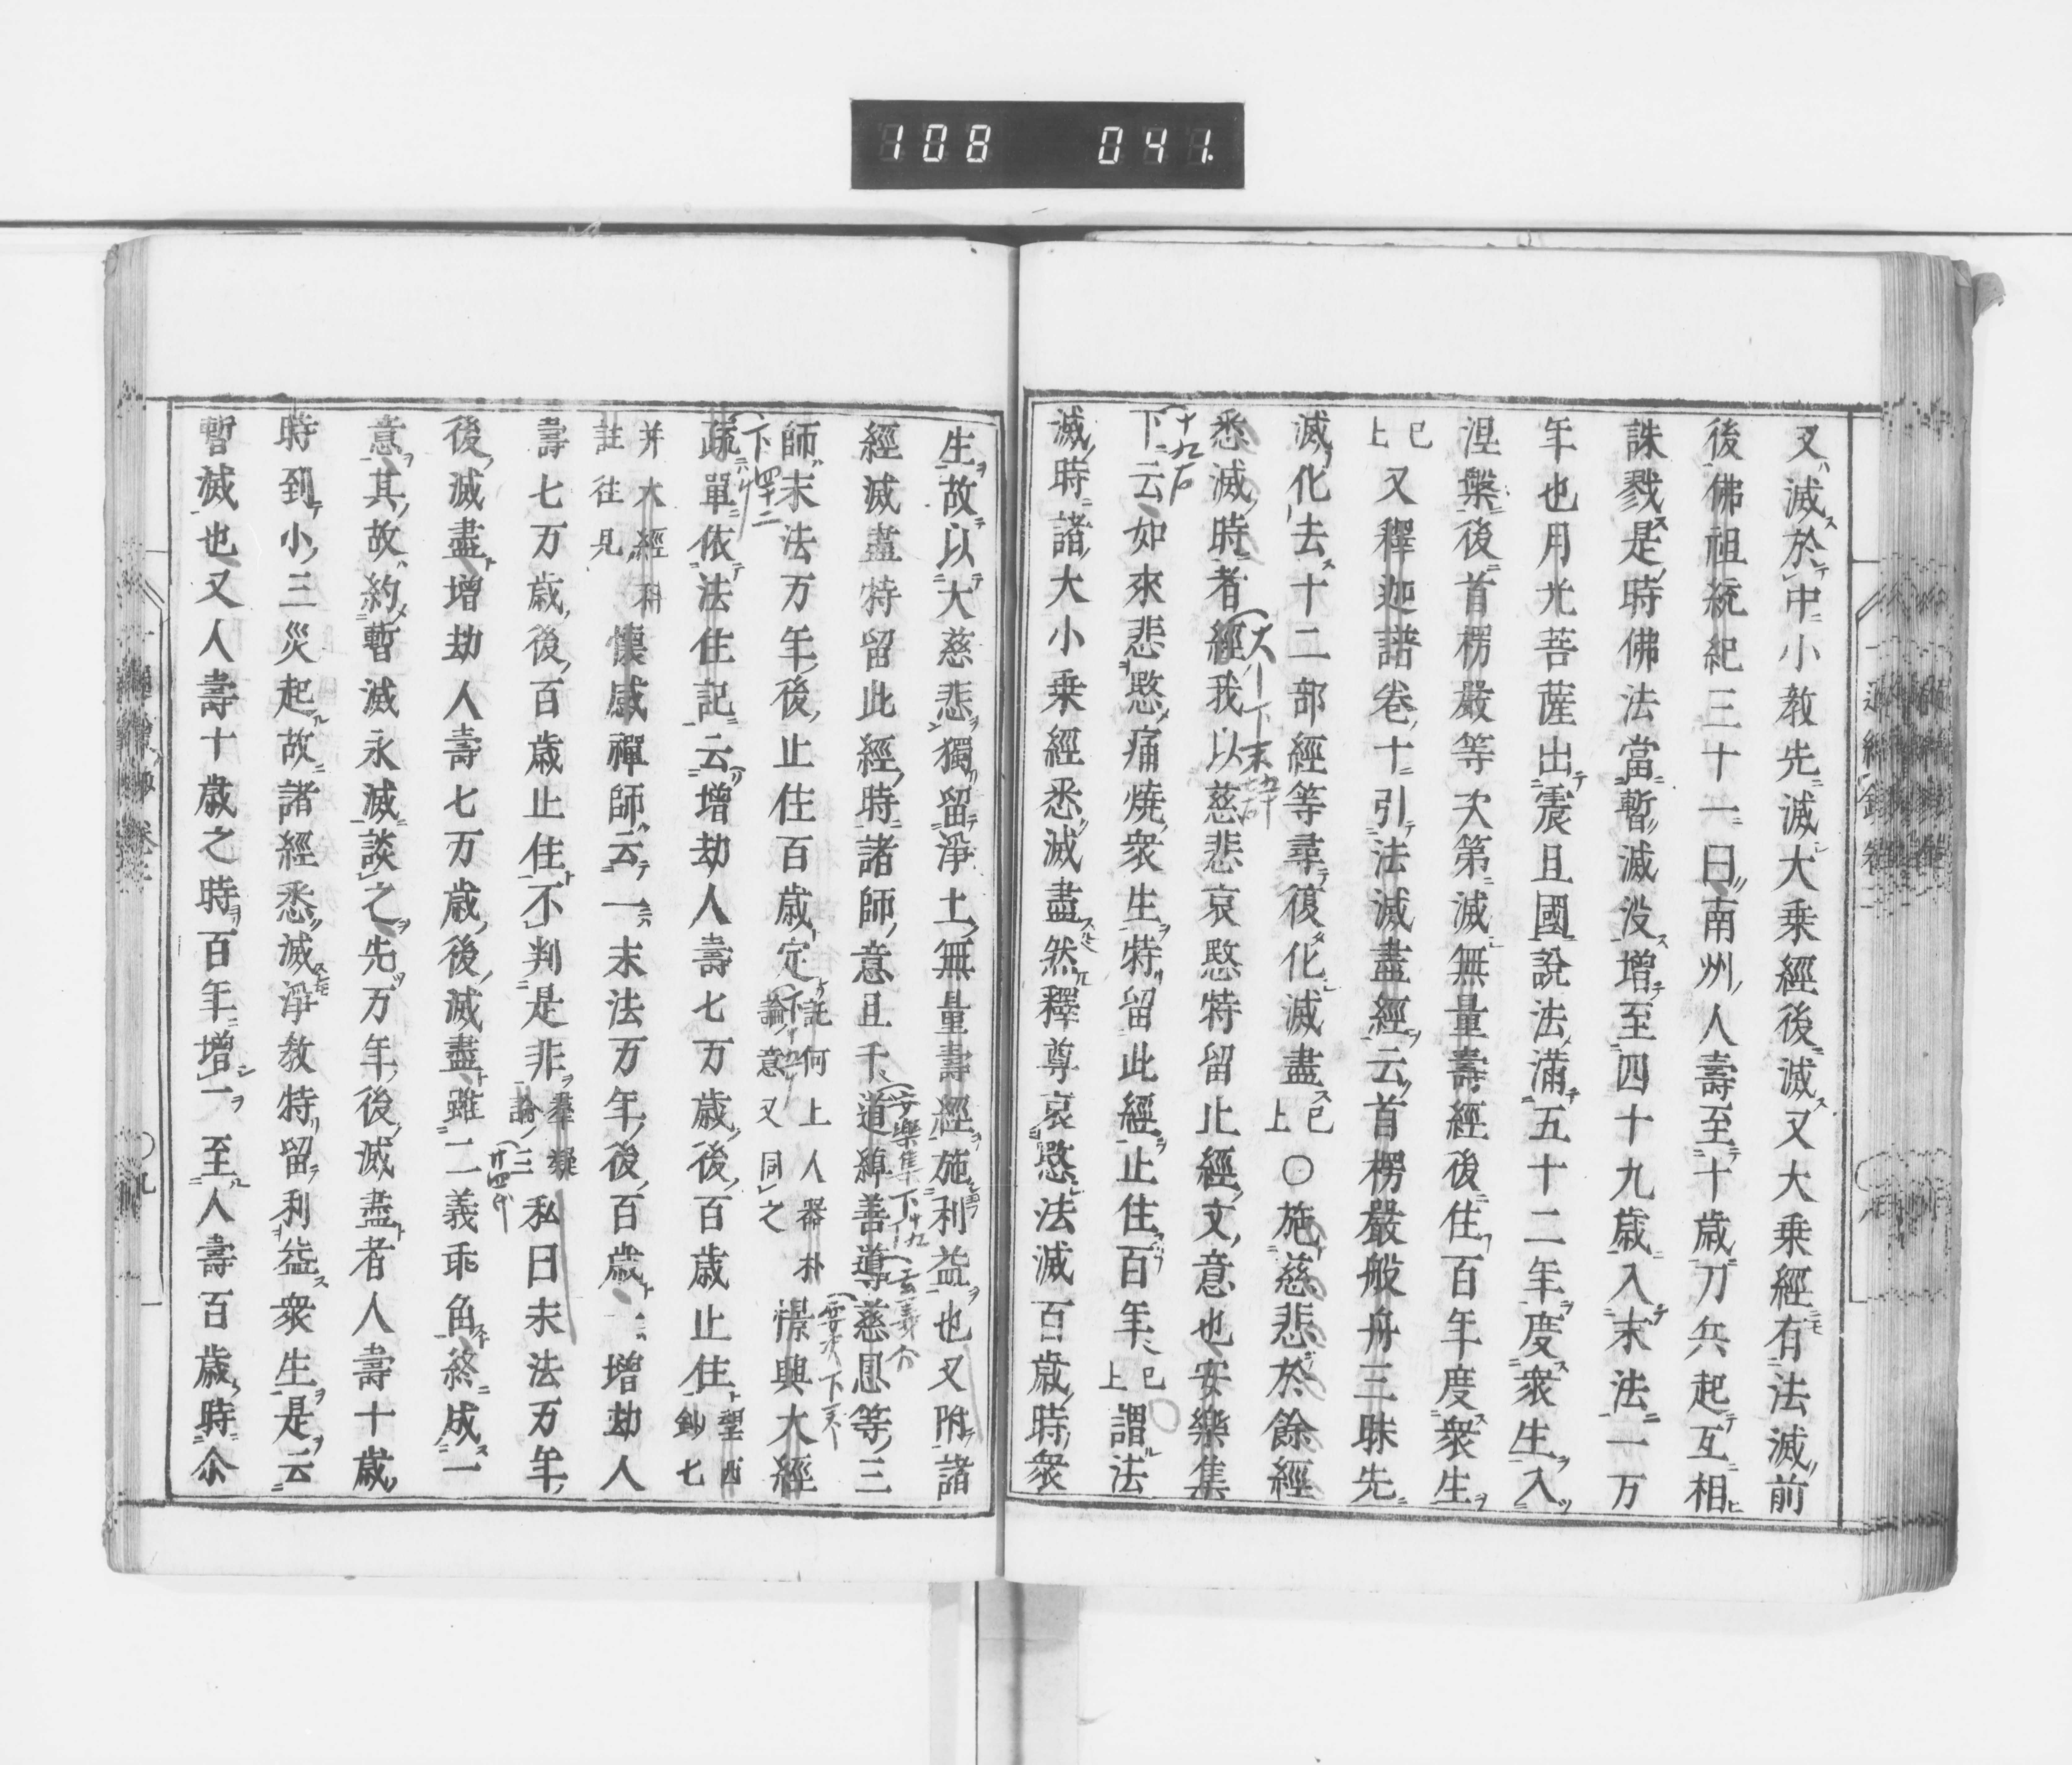 108 041
又滅於中小教先滅大乗經後滅又大乗經有法滅前
後佛祖統紀三十一曰南州人壽至十歲刀兵起互相
誅戮是時佛法當暫滅没增至四十九歲入末法一万
年也月光菩薩出震旦國說法滿五十二年度衆生入
涅槃後首楞嚴等次第滅無量壽經後住百年度衆生
已上又釋迦譜卷十引法滅盡經云首楞嚴般舟三昧先
滅化去十二部經等尋復化滅盡已上○施慈悲於餘經
悉滅時者經我以慈悲哀愍特留止經文意也安樂集
下云如來悲愍痛燒衆生特留此經止住百年已上謂法
滅時諸大小乗經悉滅盡然釋尊哀愍法滅百歲時衆
生故以大慈悲獨留淨土無量壽經施利益也又附諸
經滅盡特留此經時諸師意且千道綽善導慈恩等三
師末法万年後止住百歲定註何上人器朴論意又同之憬興大經
疏單依法住記云增劫人壽七万歲後百歲止住聖四鈔七
并大經科註往見懷感禪師云一末法万年後百歲二增劫人
壽七万歲後百歲止住不判是非羣疑論三私曰末法万年
後滅盡增劫人壽七万歲後滅盡雖二義乖角終成一
意其故約暫滅永滅談之先万年後滅盡者人壽十歲
時到小三災起故諸經悉滅淨教特留利益衆生是云
暫滅也又人壽十歲之時百年增一至人壽百歲時尒